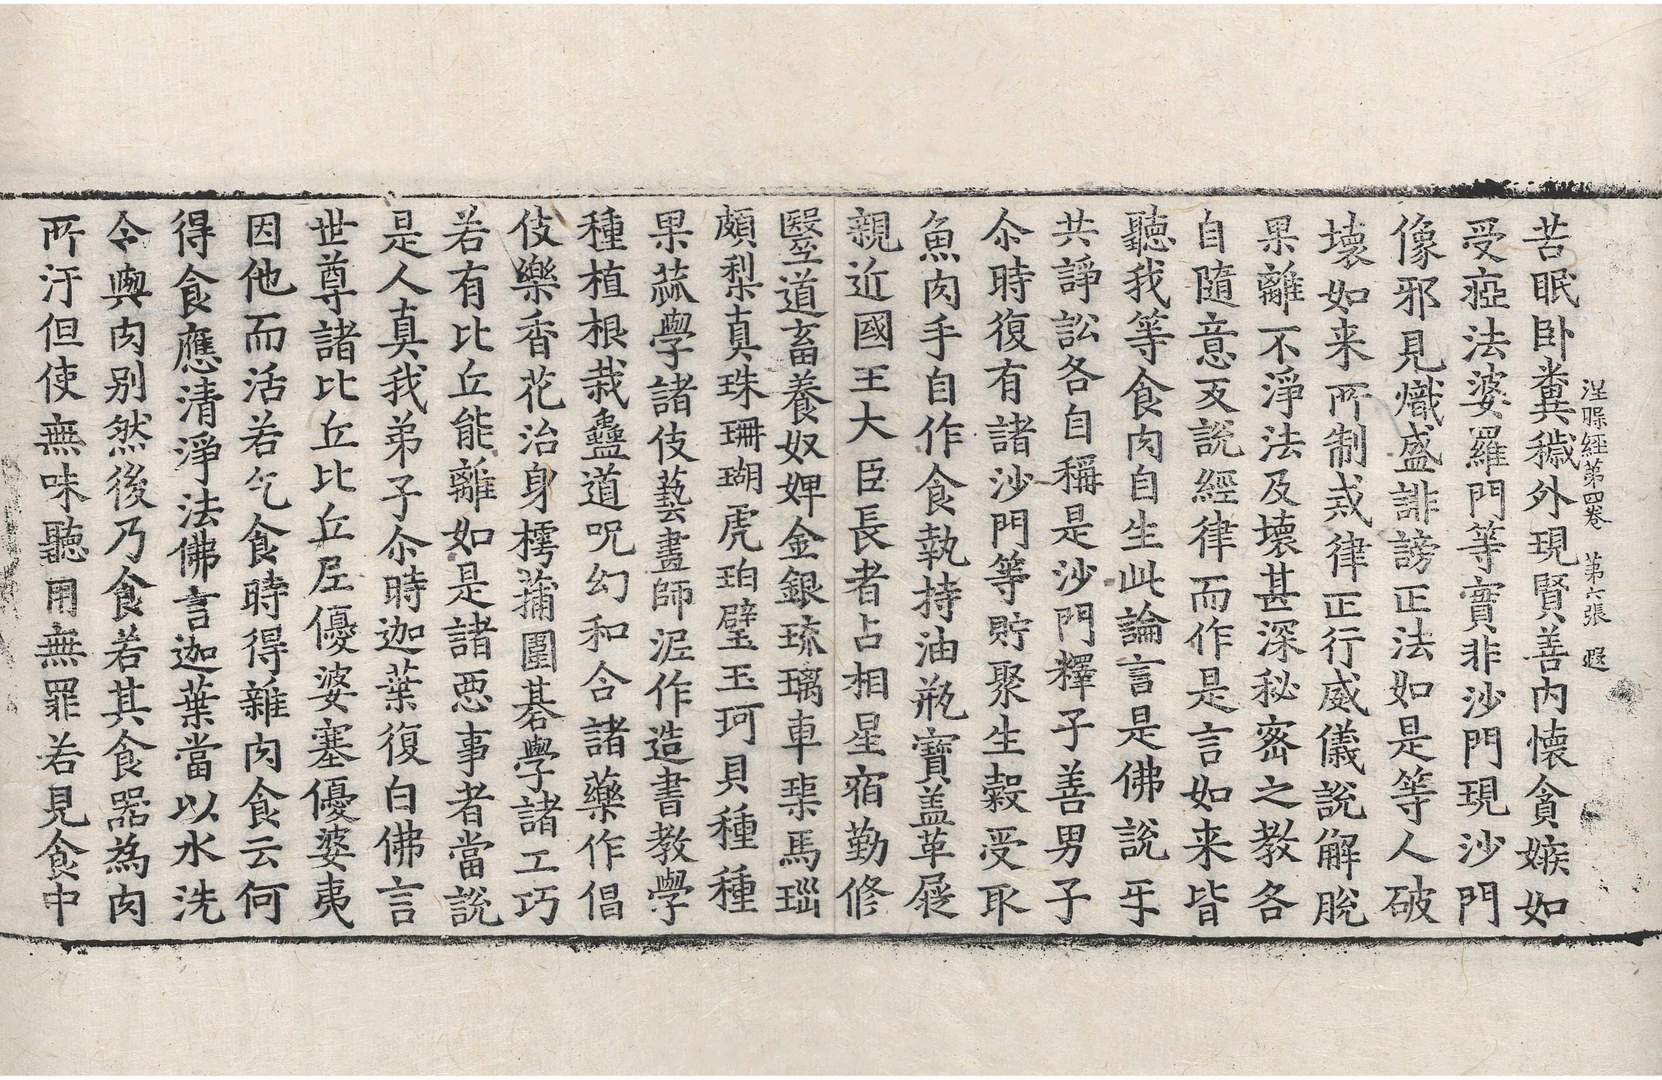 涅槃經第四卷　第六張　遐
苦眠卧糞穢外現賢善内懷貪嫉如
受瘂法婆羅門等實非沙門現沙門
像邪見熾盛誹謗正法如是等人破
壞如来所制戒律正行威儀說解脫
果離不淨法及壞甚深秘密之教各
自隨意反說經律而作是言如来皆
聽我等食肉自生此論言是佛說𤓰
共諍訟各自稱是沙門釋子善男子
尒時復有諸沙門等貯聚生穀受取
魚肉手自作食執持油瓶寶盖革屣
親近國王大臣長者占相星宿勤修
毉道畜養奴婢金銀琉璃車𤦲馬瑙
頗梨真珠珊瑚虎珀璧玉珂貝種種
果蓏學諸伎藝畫師泥作造書教學
種植根栽蠱道呪幻和合諸藥作倡
伎樂香花治身樗蒲圍碁學諸工巧
若有比丘能離如是諸惡事者當說
是人真我弟子尒時迦葉復白佛言
世尊諸比丘比丘尼優婆塞優婆夷
因他而活若乞食時得雜肉食云何
得食應清淨法佛言迦葉當以水洗
令與肉别然後乃食若其食器為肉
所汙但使無味聽用無罪若見食中